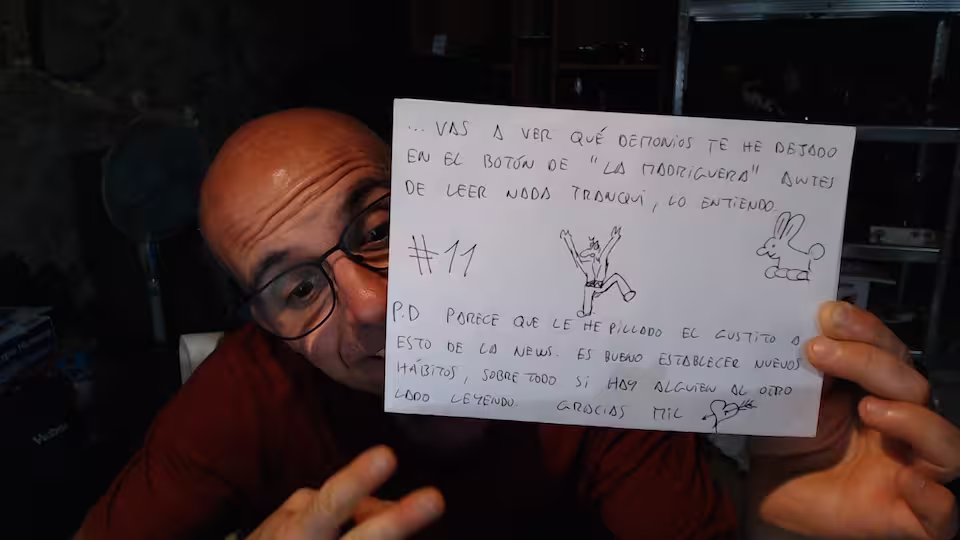 ... VAS A VER QUÉ DEMONIOS TE HE DEJADO
EN EL BOTÓN DE "LA MADRIGUERA" ANTES
DE LEER NADA TRANQUI, LO ENTIENDO
#11
P.D PARECE QUE LE HE PILLADO EL GUSTITO A
ESTO DE LA NEWS. ES BUENO ESTABLECER NUEVOS
HÁBITOS, SOBRE TODO SI HAY ALGUIEN AL OTRO
LADO LEYENDO. GRACIAS MIL